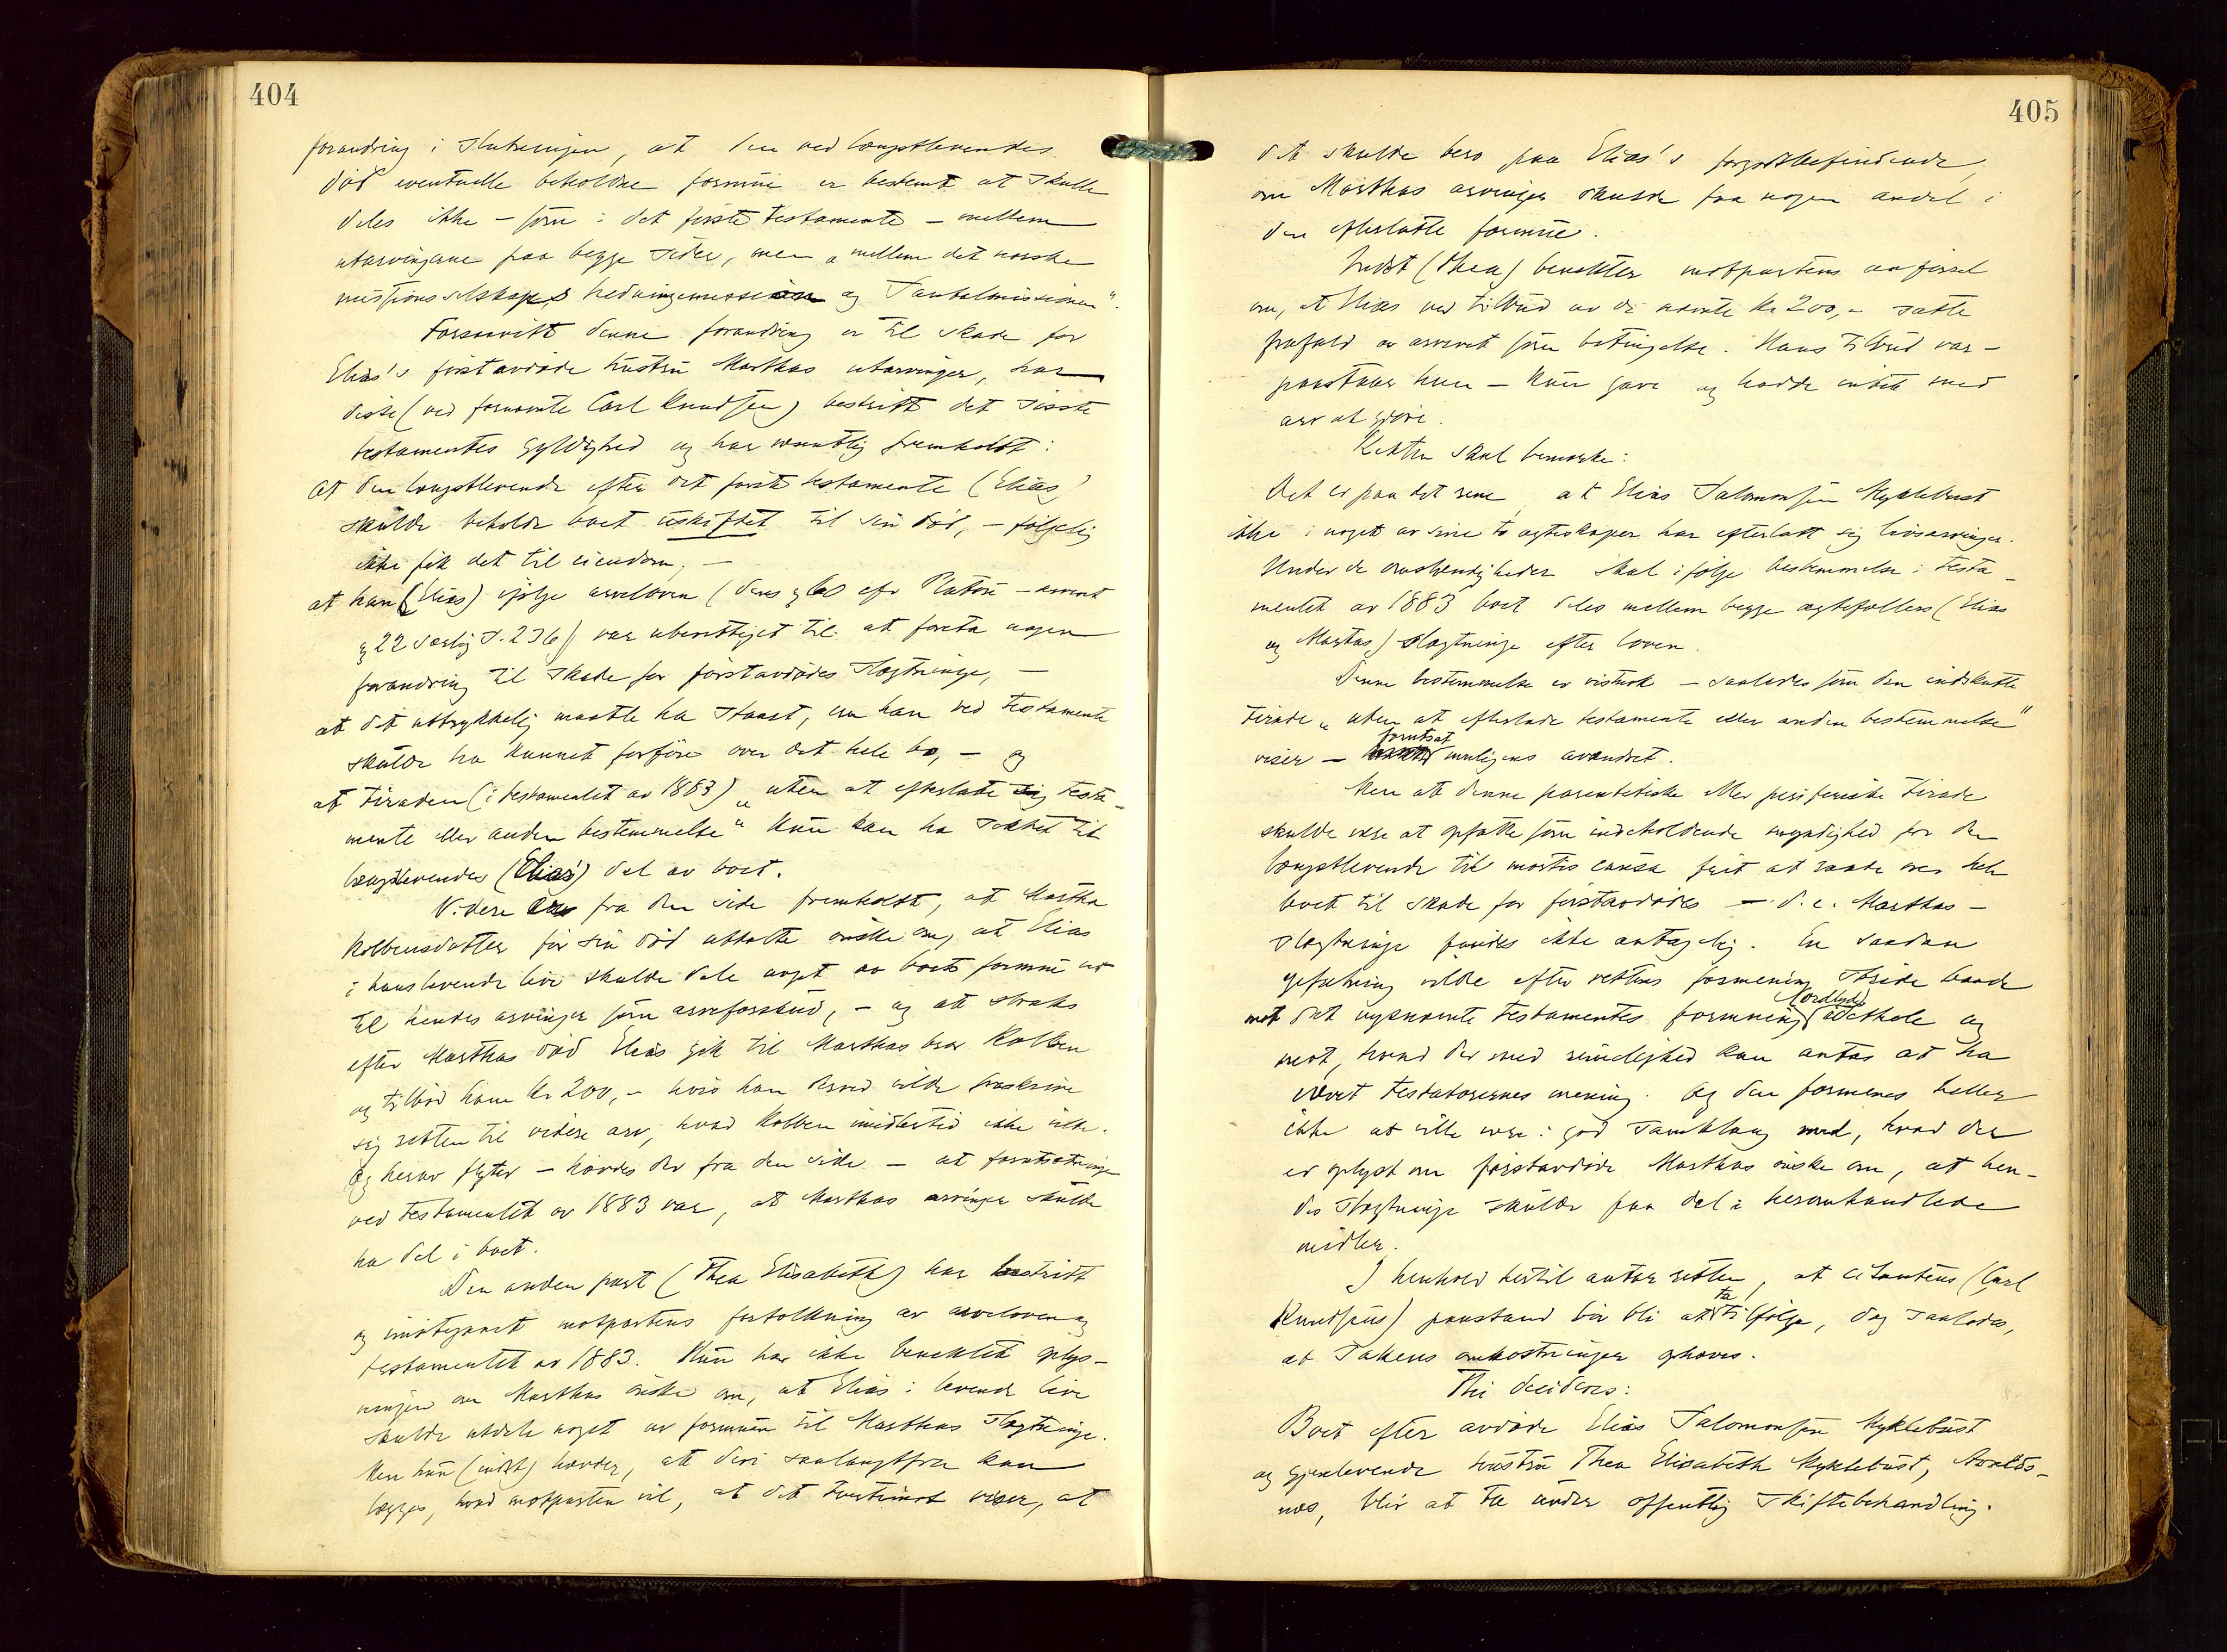 404
forandring i Slutningen, at den ved længstlevendes
død eventuelle beholdne formue er bestemt at skulle
deles ikke – som i det første testamente – mellem
utarvingerne paa begge sider, men "mellem det norske
missionsselskaps hedningemission og Santalmissionen".
Forsaavitt denne forandring er til skade for
Elias's førstavdøde hustru Marthas utarvinger, har
disse (ved fornævnte Carl Knudsen) bestritt det sisste
testamentes gyldighed og har væsentlig fremholdt:
at den længstlevende efter det første testamente (Elias)
skulde beholde boet uskiftet til sin død, – følgelig
ikke fik det til eiendom, –
at han (Elias) ifølge arveloven (dens § 60 cfr Platou – arveret
§ 22 særlig S. 236) var uberettiget til at foreta nogen
forandring til skade for førstavdødes slægtninge, –
at det uttrykkelig maatte ha staaet, om han ved testamente
skulde ha kunnet forføie over det hele bo, – og
at tiraden (i testamentet av 1883) "uten at efterlate sig testa-
mente eller anden bestemmelse" kun kan ha sektet til
længstlevendes (Elias's) del av boet.
Videre er fra den side fremholdt, at Martha
Kolbensdatter før sin død uttalte ønske om, at Elias
i hans levende live skulde dele noget av boets formue ut
til hendes arvinger som arveforskud, – og at straks
efter Marthas død Elias gik til Marthas bror Kolben
og tilbød ham kr 200,- hvis han derved vilde fraskrive
sig retten til videre arv, hvad Kolben imidlertid ikke vilde.
Og herav flyter – hævdes der fra den side – at forutsætningen
ved testamentet av 1883 var, at Marthas arvinger skulde
ha del i boet.
Den anden part (Thea Elisabeth) har bestridt
og imøtegaaet motpartens fortolkning av arveloven og
testamentet av 1883. Hun har ikke benektet oplys-
ningen om Marthas ønske om, at Elias i levende live
skulde utdele noget av formuen til Marthas slægtninge.
Men hun (indst) hævder, at deri saalangtfra kan
lægges, hvad motparten vil, at det tvertimot viser, at
405
det skulde bero paa Elias's forgodtbefindende,
om Marthas arvinger skulde faa nogen andel i
den efterlatte formue.
Indst (Thea) benekter motpartens anførsel
om, at Elias ved tilbud av de nævnte kr 200,- satte
frafald av arveret som betingelse. Hans tilbud var –
paastaar hun – kun gave og hadde intet med
arv at gjøre.
Retten skal bemerke:
Det er paa det rene, at Elias Salomonsen Myklebust
ikke i noget av sine to egteskaper har efterlatt sig livsarvinger.
Under de omstendigheder skal i følge bestemmelse i testa-
mentet av 1883 boet deles mellem begge egtefollers (Elias
og Martas) slægtninge efter loven.
Denne bestemmelse er visterk – saaledes som den indskutte
tirade "uten at efterlade testamente eller anden bestemmelse"
viser – forutsat muligens avendret.
Men at denne parentetiske eller periferiske tirade
skulde være at opfatte som indeholdende myndighed for den
længstlevende til mortis causa frit at raade over hele
boet til skade for førstavdødes – d.e. Marthas –
slægtninge findes ikke antagelig. En saadan
gjefsetning vilde efter rettens formening stride baade
mot det nysnævnte testamentes formening (ordlyd) i dethele og
mot, hvad der med rimelighed kan antas at ha
været testatorernes mening. Og den formenes heller
ikke at ville være i god samklang med, hvad der
er oplyst om førstavdøde Marthas ønske om, at hen-
des slægtninge skulde faa del i heromhandlede
midler.
I henhold hertil antar retten, at citantens (Carl
Knudsens) paastand bør bli at ta tilfølge, dog saaledes,
at Sakens omkostninger ophæves.
Thi decideres:
Boet efter avdøde Elias Salomonsen Myklebust
og gjenlevende hustru Thea Elisabeth Myklebust, Avalds-
nes, blir at ta under offentlig Skiftebehandling.